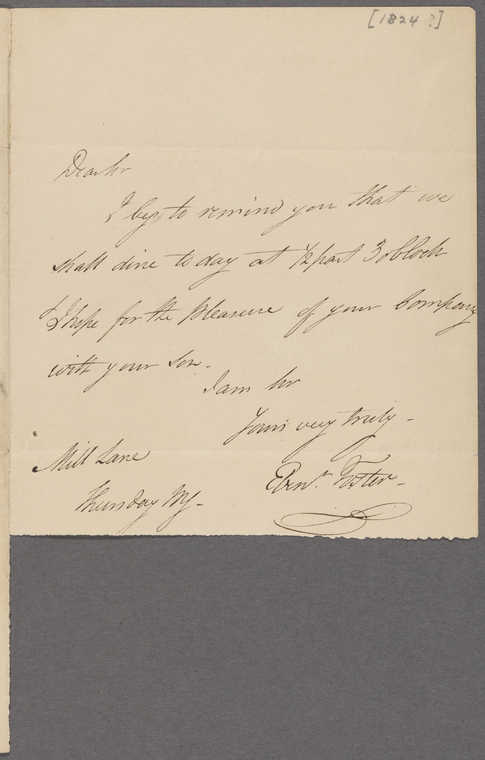 [1824?]
Dear Sir
I beg to remind you that we
shall dine to day at 1/2 past 3 oClock
& I hope for the pleasure of your Company
with your Son.
I am Sir
Yours very truly -
Mill Lane
Foster -
Thursday Mg -